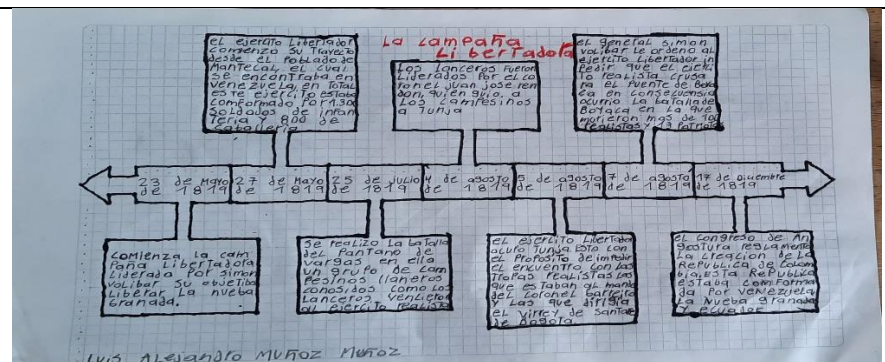 La campaña
Libertadora
el ejercito Libertador
comenzo su Trayecto
desde el Poblado de
Mantecal, el cual
se encontraba en
venezuela, en total
este ejercito estaba
comformado por 1.300
soldados de infan
teria y 800 de
caballeria
Los Lanceros Fueron
Liderados Por el co
ronel Juan José ren
don, quien guio, a
Los campesinos
a Tunja
el general simon
volibar Le ordeno al
ejercito Libertador im
pedir que el ejerci
to realista crusa
ra el Puente de Boya
ca en consecuencia
ocurrio La batalla de
Boyaca en la que
murieron mas de 100
realistas y 13 Patriotas
23 de Mayo
de 1819
27 de Mayo
de 1819
25 de julio
de 1819
4 de agosto
de 1819
5 de agosto
de 1819
7 de agosto
de 1819
17 de Diciembre
de 1819
comienza La cam
paña Libertadora
Liderada Por simon
volibar su objetibo
Libetar La nueba
Granada.
se realizo La batalla
del Pantano de
vargas en ella
un grupo de cam
Pesinos llaneros
conosidos como Los
Lanceros vencieron
al ejercito realista
el ejercito Libertador
ocupo Tunja esto con
el Proposito de impedir
el encuentro con las
tropas realistas las
que estaban al mando
del coronel barreiro
y Las que dirigia
el virrey de santafe
de Bogota
el congreso de An
gostura reglamento
La creacion de La
Republica de colom
bia, esta Republica
estaba comforma
da Por venezuela,
La nueba granada
y ecuador
Luis ALejandro Muñoz Muñoz